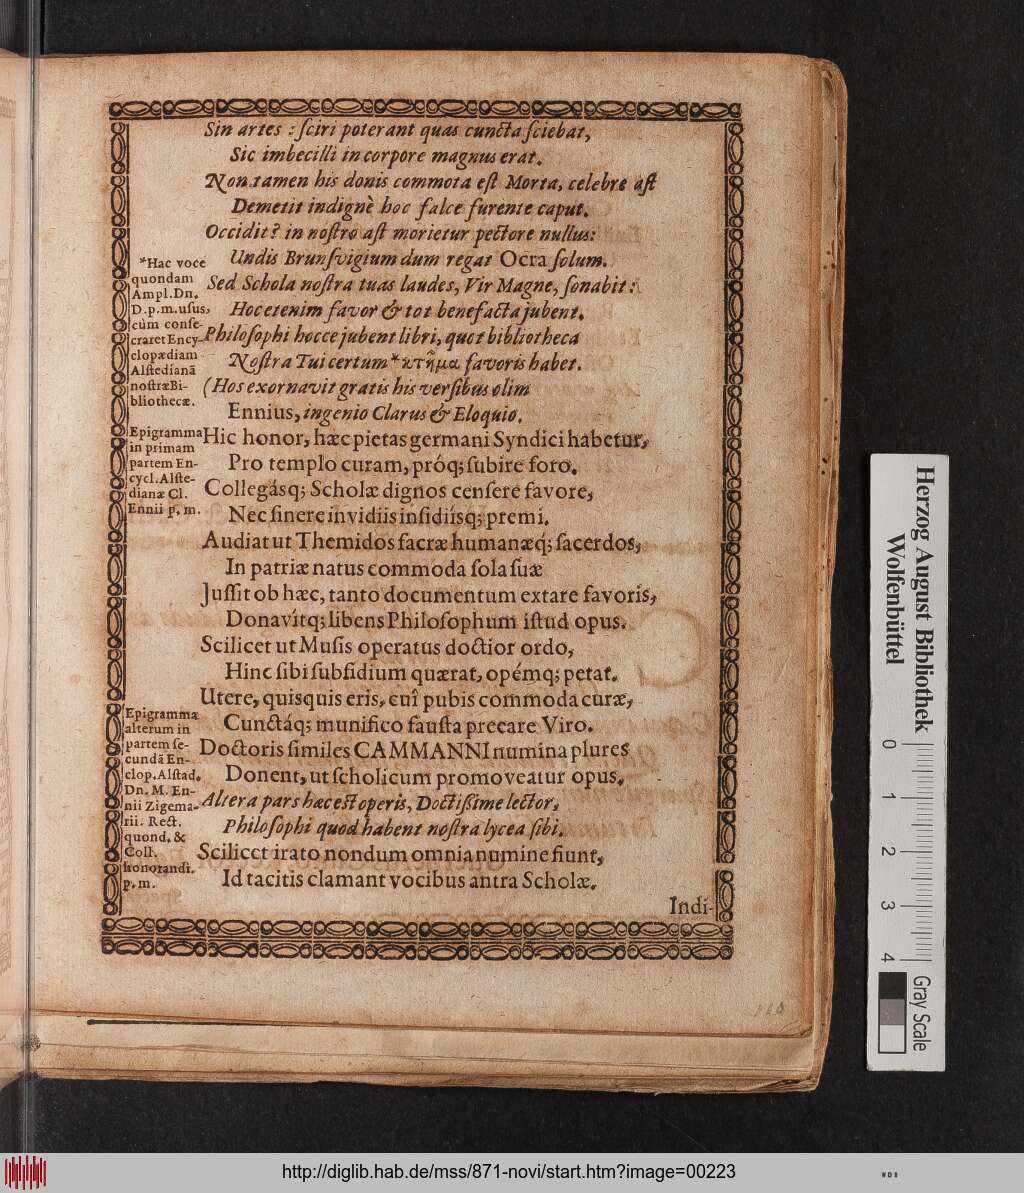 Sin artes : ſciri poterant quas cuncta ſciebat,
Sic imbecilli in corpore magnus erat.
Non tamen his donis commota eſt Morta, celebre aſt
Demetit indignè hoc falce furente caput.
Occidit? in noſtro aſt morietur pectore nullus:
Undis Brunſvigium dum regat Ocra ſolum.
Sed Schola noſtra tuas laudes, Vir Magne, ſonabit:
Hoc etenim favor & tot benefacta jubent.
Philoſophi hocce jubent libri, quot bibliotheca
Noſtra Tui certum * κτῆμα favoris habet.
(Hos exornavit gratis his verſibus olim
Ennius, ingenio Clarus & Eloquio.
*Hac voce
quondam
Ampl. Dn.
D. p. m. uſus,
cùm conſe-
craret Ency-
clopædiam
Alſtedianã
noſtræ Bi-
bliothecæ.
Hic honor, hæc pietas germani Syndici habetur,
Pro templo curam, próq; ſubire foro.
Collegásq; Scholæ dignos cenſere favore,
Nec ſinere invidiis inſidiíſq; premi.
Audiat ut Themidos ſacræ humanæq́; ſacerdos,
In patriæ natus commoda ſola ſuæ
Juſſit ob hæc, tanto documentum extare favoris,
Donavítq; libens Philoſophum iſtud opus.
Scilicet ut Muſis operatus doctior ordo,
Hinc ſibi ſubſidium quærat, opémq; petat.
Utere, quisquis eris, cui pubis commoda curæ,
Cunctáq; munifico fauſta precare Viro.
Doctoris ſimiles CAMMANNI numina plures
Donent, ut ſcholicum promoveatur opus.
Epigramma
in primam
partem En-
cycl. Alſte-
dianæ Cl.
Ennii p. m.
Altera pars hæc eſt operis, Doctiſſime lector,
Philoſophi quod habent noſtra lycea ſibi.
Scilicet irato nondum omnia numine fiunt,
Id tacitis clamant vocibus antra Scholæ.
Epigramma
alterum in
partem ſe-
cundã En-
clop. Alſtad.
Dn. M. En-
nii Zigema-
rii. Rect.
quond. &
Coll.
honorandi.
p. m.
Indi-
Herzog August Bibliothek
Wolfenbüttel
0 1 2 3 4
Gray Scale
http://diglib.hab.de/mss/871-novi/start.htm?image=00223